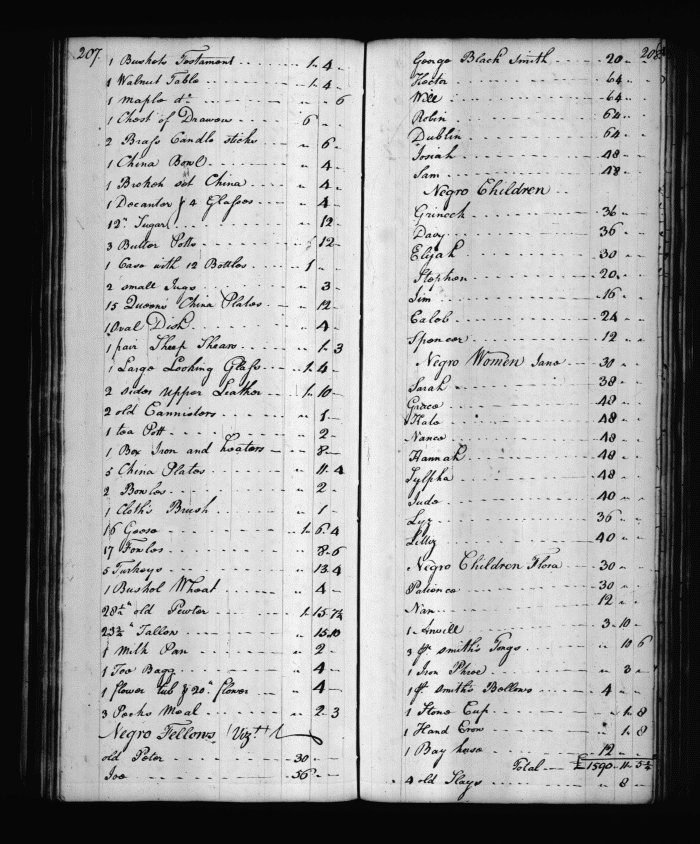 207.
1 Bushets Testament 1 4
1 Walnut Table 1 4
1 maple do " " 6
1 Chest of Drawers 6
2 Brass Candle sticks " 6
1 China Bowl " 4
1 Broken set China " 4
1 Decanter & 4 Glasses " 4
12 Sugar " 12
3 Butter Potts 12
1 Case with 12 Bottles 1
2 small Jugs " 3
15 Queens China Plates 12
1 Oval Dish 4
1 pair Sheep Shears 1 3
1 Large Looking Glass 1 4
2 sides upper Leather 1 10
2 old Cannisters " 1
1 tea Pott " 2
1 Box Iron and heaters 8
5 China Plates " 11 4
2 Bowles " 2
1 Cloth's Brush 1
16 Geese 1 6 4
17 Fowles 8 6
5 Turkeys 13 4
1 Bushel Wheat " 4
28½ old Pewter 1 15 7½
23½ Tallow " 15 10
1 Milk Pan " 2
1 Bagg " 4
1 flower tub & 20 flower " 4
3 Pecks Meal " 2 3
Negro Fellows Vizt
old Peter 30
Joe 56
208
George Black Smith 20
Hector 64
Will 64
Robin 64
Dublin 64
Josiah 48
Sam 48
Negro Children
Grineck 36
Davy 36
Elijah 30
Stephen 20
Jim 16
Caleb 24
Spencer 12
Negro Women Jane 30
Sarah 38
Grace 48
Kate 48
Nance 48
Hannah 48
Sylpha 48
Jude 40
Lyz 36
Lilly 40
Negro Children Flora 30
Patience 30
Nan 12
1 Anvill 3 10
3 pr smith's Tongs " 10 6
1 Iron " 3
1 pr smith's Bellows 4
1 Stone Cup " 1 8
1 Hand Crow " 1 8
1 Bay horse 12
Total £1590 11 5½
4 old Slays " 8